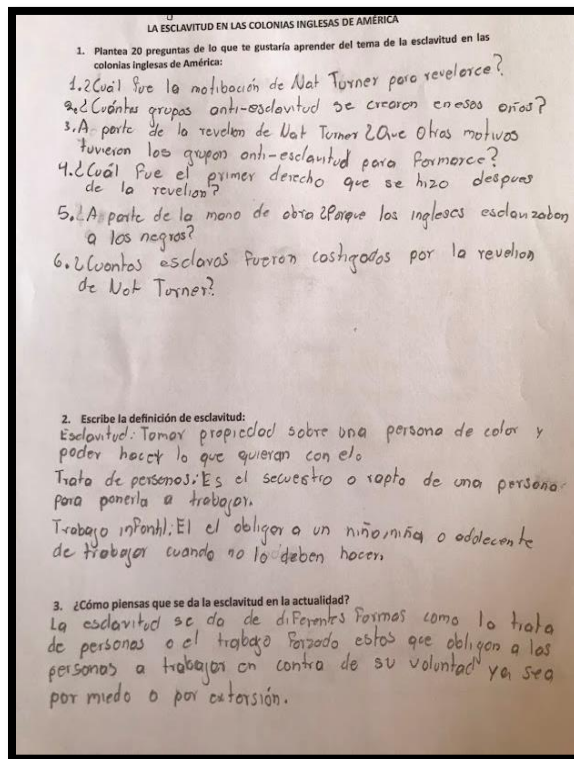 LA ESCLAVITUD EN LAS COLONIAS INGLESAS DE AMÉRICA
1. Plantea 20 preguntas de lo que te gustaría aprender del tema de la esclavitud en las
colonias inglesas de América:
1.¿Cuál fue la motibación de Nat Turner para revelarce?
2.¿Cuántos grupos anti-esclavitud se crearon en esos años?
3.A parte de la revelion de Nat Turner ¿Que Otros motivos
tuvieron los grupon anti-esclavitud para formarce?
4.¿Cuál fue el primer derecho que se hizo despues
de la revelion?
5.¿A parte de la mano de obra ¿Porque los ingleses esclavizaban
a los negros?
6.¿Cuantos esclavos fueron castigados por la revelion
de Nat Turner?
2. Escribe la definición de esclavitud:
Esclavitud: Tomar propiedad sobre una persona de color y
poder hacer lo que quieran con elo
Trata de personas: Es el secuestro o rapto de una persona
para ponerla a trabajar.
Trabajo infantil: El el obligar a un niño, niña o adolecente
de trabajar cuando no lo deben hacer.
3. ¿Cómo piensas que se da la esclavitud en la actualidad?
La esclavitud se da de diferentes formas como la trata
de personas o el trabajo forzado estos que obligan a las
personas a trabajar en contra de su voluntad ya sea
por miedo o por extorsión.